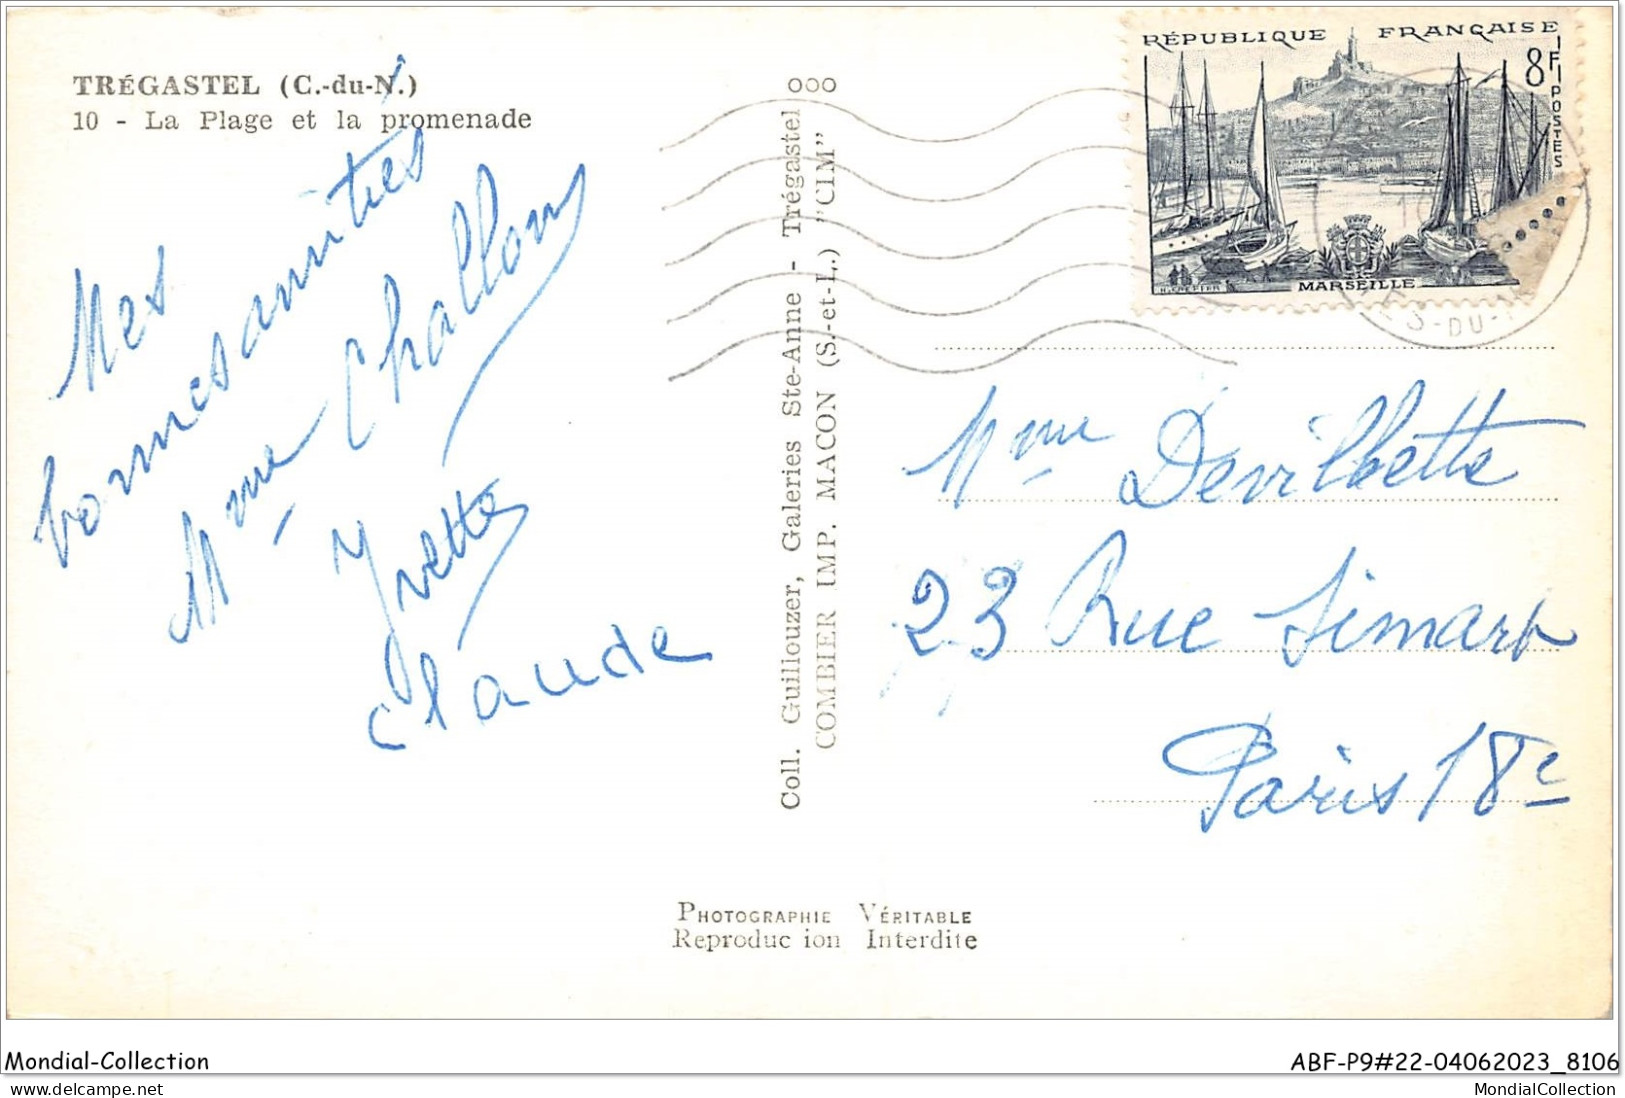 TRÉGASTEL (C.-du-N.)
10 - La Plage et la promenade
Mes
bonnes amitiés
Mme Challons
Yvette
Claude
000
Coll. Guillouzer, Galeries Ste-Anne - Trégastel
COMBIER IMP. MACON (S.-et-L.) "CIM"
RÉPUBLIQUE FRANÇAISE
8F
POSTES
MARSEILLE
ES-DU-N
Mme Devilbette
23 Rue Simart
Paris 18e
PHOTOGRAPHIE VÉRITABLE
Reproduc ion Interdite
Mondial-Collection
ABF-P9#22-04062023_8106
Mondial-Collection.com
MondialCollection